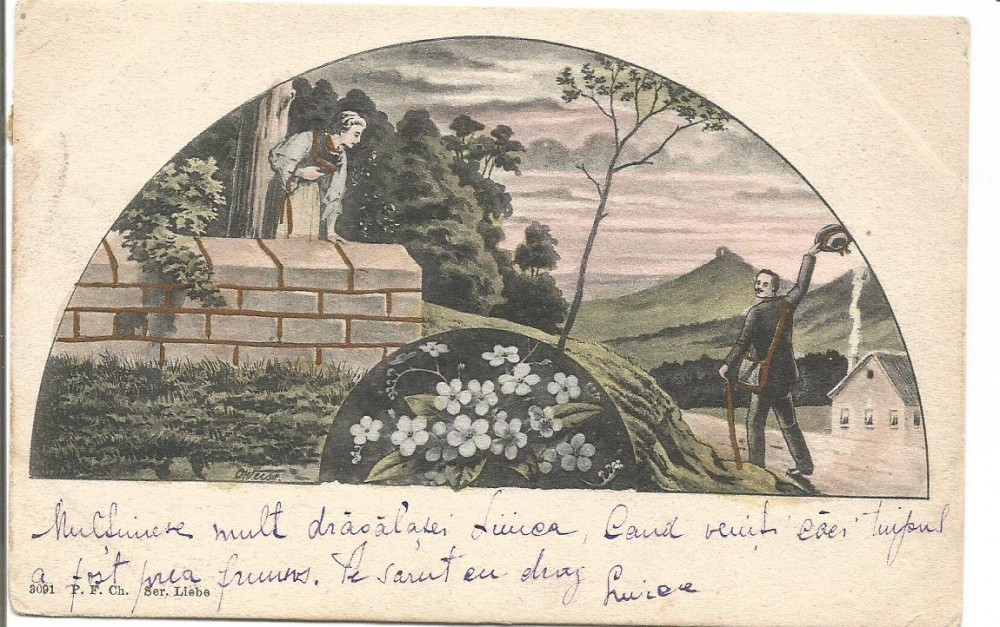 Mulțumesc mult drăgălașei Luica, Cand veniți căci timpul
a fost prea frumos. Te sarut cu drag
3091 P. F. Ch. Ser. Liebe